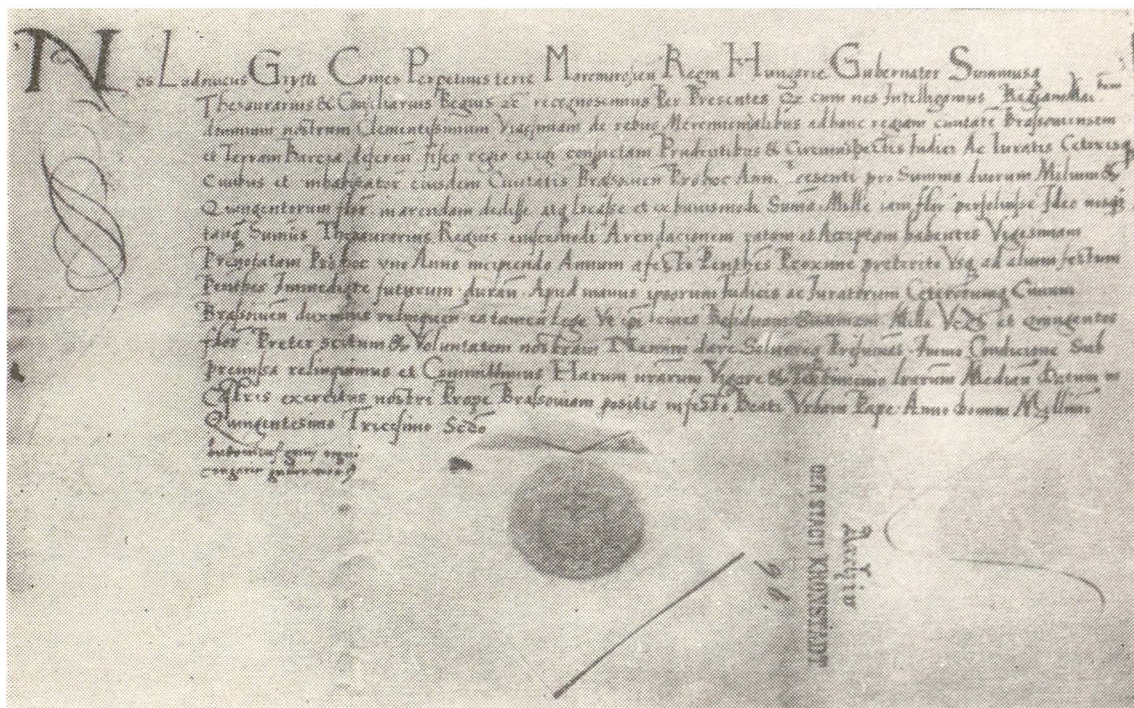 Nos Ludovicus Grytti Comes Perpetuus terre Maromorosien Regni Hungarie Gubernator Summusq
Thesaurarius & Consiliarius Regius ac recognoscimus Per Presentes Q cum nos Intelligamus Regiam Mai
dominum nostrum Clementissimum Vigesimam de rebus Mercimonialibus ad hanc regiam civitate Brassoviensem
et Terram Barcza deferen fisco regio exigi consuetam Prudentibus & Circumspectis Iudici Ac Iuratis Ceterisq
Civibus et inhabitator eiusdem Civitatis Brassovien Pro hoc Ann esenti pro Summa duorum Milium &
Quingentorum flor in arendam dedisse atq locasse et ex huiusmodi Suma Mille iam flor persolvisse Ideo
tanq Sumus Thesaurarius Regius eiuscemodi Arendacionem ratam et Acceptam habentes Vigesimam
Prenotatam Pro hoc uno Anno incipiendo Annum a festo Penthes Proxime preterito Usq ad aliud festum
Penthes Immediate futurum duran Apud manus ipsorum Iudicis ac Iuratorum Ceterorumq Civium
Brassovien duximus relinquen ea tamen lege Ut ipi cives Residuam Summam Mille et quingentos
flor Preter scitum & Voluntatem nostram Nemini dare Solvereq Presumat Immo Condicione Sub
premissa relinquimus et Committimus Harum nrarum Vigore & testimonio lrarum Median Datum in
Castris exercitus nostri Prope Brassoviam positis in festo Beati Urbani Pape Anno domini Millmo
Quingentesimo Tricesimo Scdo
ludovicus gritj regni
ungarie gubernator
Archiv
DER STADT KRONSTADT
96.